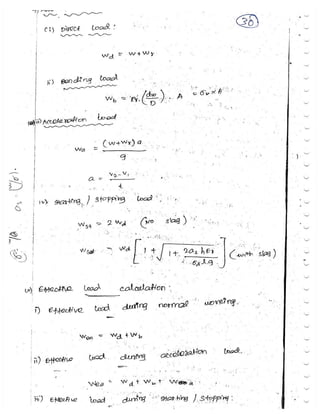 38
(i) Direct Load :
Wd = W+Wr
ii) Bending load
Wb = Er (dw/D) . A = σb × A
iii) Acceleration load
Wa = (W+Wr) a / g
a = V2 - V1 / t
iv) Starting / Stopping Load :
Wst = 2 Wd (No slag)
= Wd [ 1 + √ 1+ ] (with slag)
v) Effective Load calculation :
i) Effective load during normal working.
Wen = Wd + Wb
ii) Effective load during acceleration load.
Wea = Wd + Wb + Wa
iii) Effective load during starting / stopping :